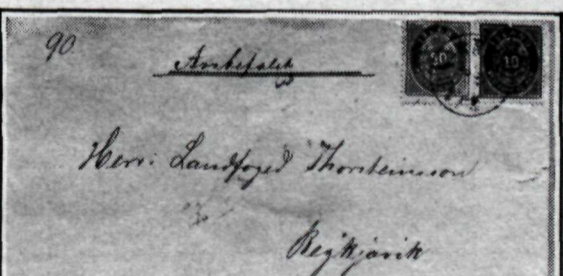 90
Anbefalet
10
Herr: Landfoged Thorsteinsson
Reykjavik